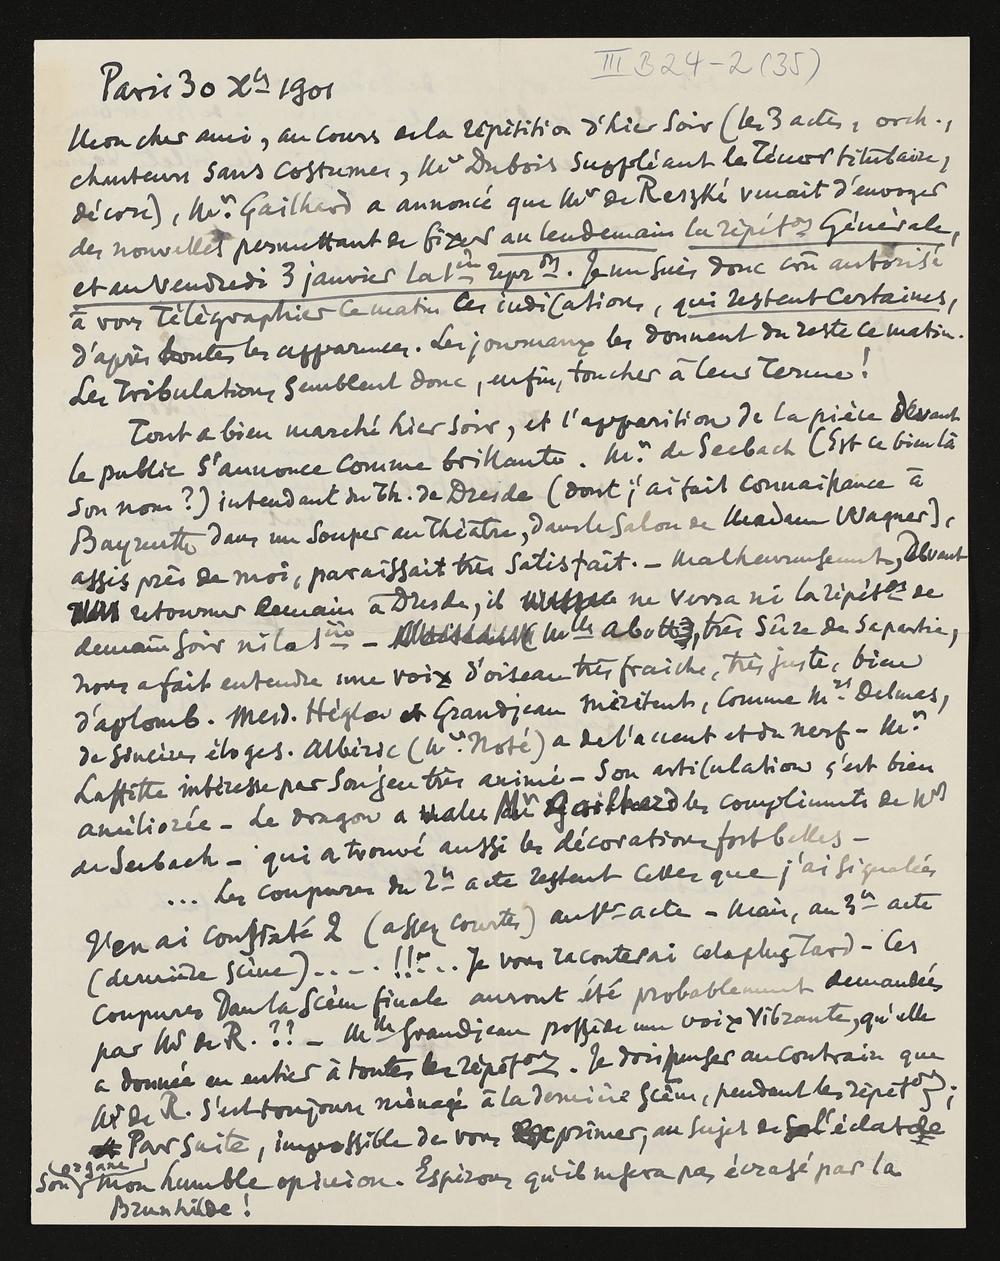 III B 24-2 (35)
Paris 30 Xbre 1901
Mon cher ami, au cours de la répétition d'hier soir (les 3 actes, orch.,
chanteurs sans costumes, Mr Dubois suppléant le Ténor titulaire,
décors), Mr. Gailhard a annoncé que Mr de Reszké venait d'envoyer
des nouvelles permettant de fixer au lendemain la répéton Générale,
et au vendredi 3 janvier la 1ère repron. Je me suis donc cru autorisé
à vous Télégraphier ce matin ces indications, qui restent certaines,
d'après toutes les apparences. Les journaux les donnent du reste ce matin.
Les Tribulations semblent donc, enfin, toucher à leur Terme!
Tout a bien marché hier soir, et l'apparition de la pièce devant
le public s'annonce comme brillante. Mr. de Seebach (Est ce bien là
son nom?) intendant du Th. de Dresde (dont j'ai fait connaissance à
Bayreuth dans un souper au Théâtre, dans le salon de Madame Wagner),
assis près de moi, paraissait très satisfait. - Malheureusement, devant
retourner demain à Dresde, il ne verra ni la répéton de
demain soir ni la 1ère - Melle Abott, très sûre de sa partie,
nous a fait entendre une voix d'oiseau très fraiche, très juste, bien
d'aplomb. Mesd. Héglon et Grandjean méritent, comme Mrs Delmas,
de sincères éloges. Albéric (Mr. Noté) a de l'accent et du nerf - Mr.
Laffitte intéresse par son jeu très animé - Son articulation s'est bien
améliorée - Le dragon a valu Mr Gailhard les compliments de Mr
de Seebach - qui a trouvé aussi les décorations fort belles -
... Les coupures du 2e acte restent celles que j'ai signalées
J'en ai constaté 2 (assez courtes) au 1er acte - Mais, au 3e acte
(dernière scène) .... !!! .. Je vous raconterai cela plus Tard - Ces
coupures Dans la Scène finale auront été probablement demandées
par Mr de R. ?? - Melle Grandjean possède une voix vibrante, qu'elle
a donnée en entier à toutes les répétons. Je dois penser au contraire que
Mr de R. s'est toujours ménagé à la dernière scène, pendant les répétons;
Par suite, impossible de vous exprimer, au sujet de l'éclat de
son organe mon humble opinion. Espérons qu'il ne sera pas écrasé par la
Brunhilde!